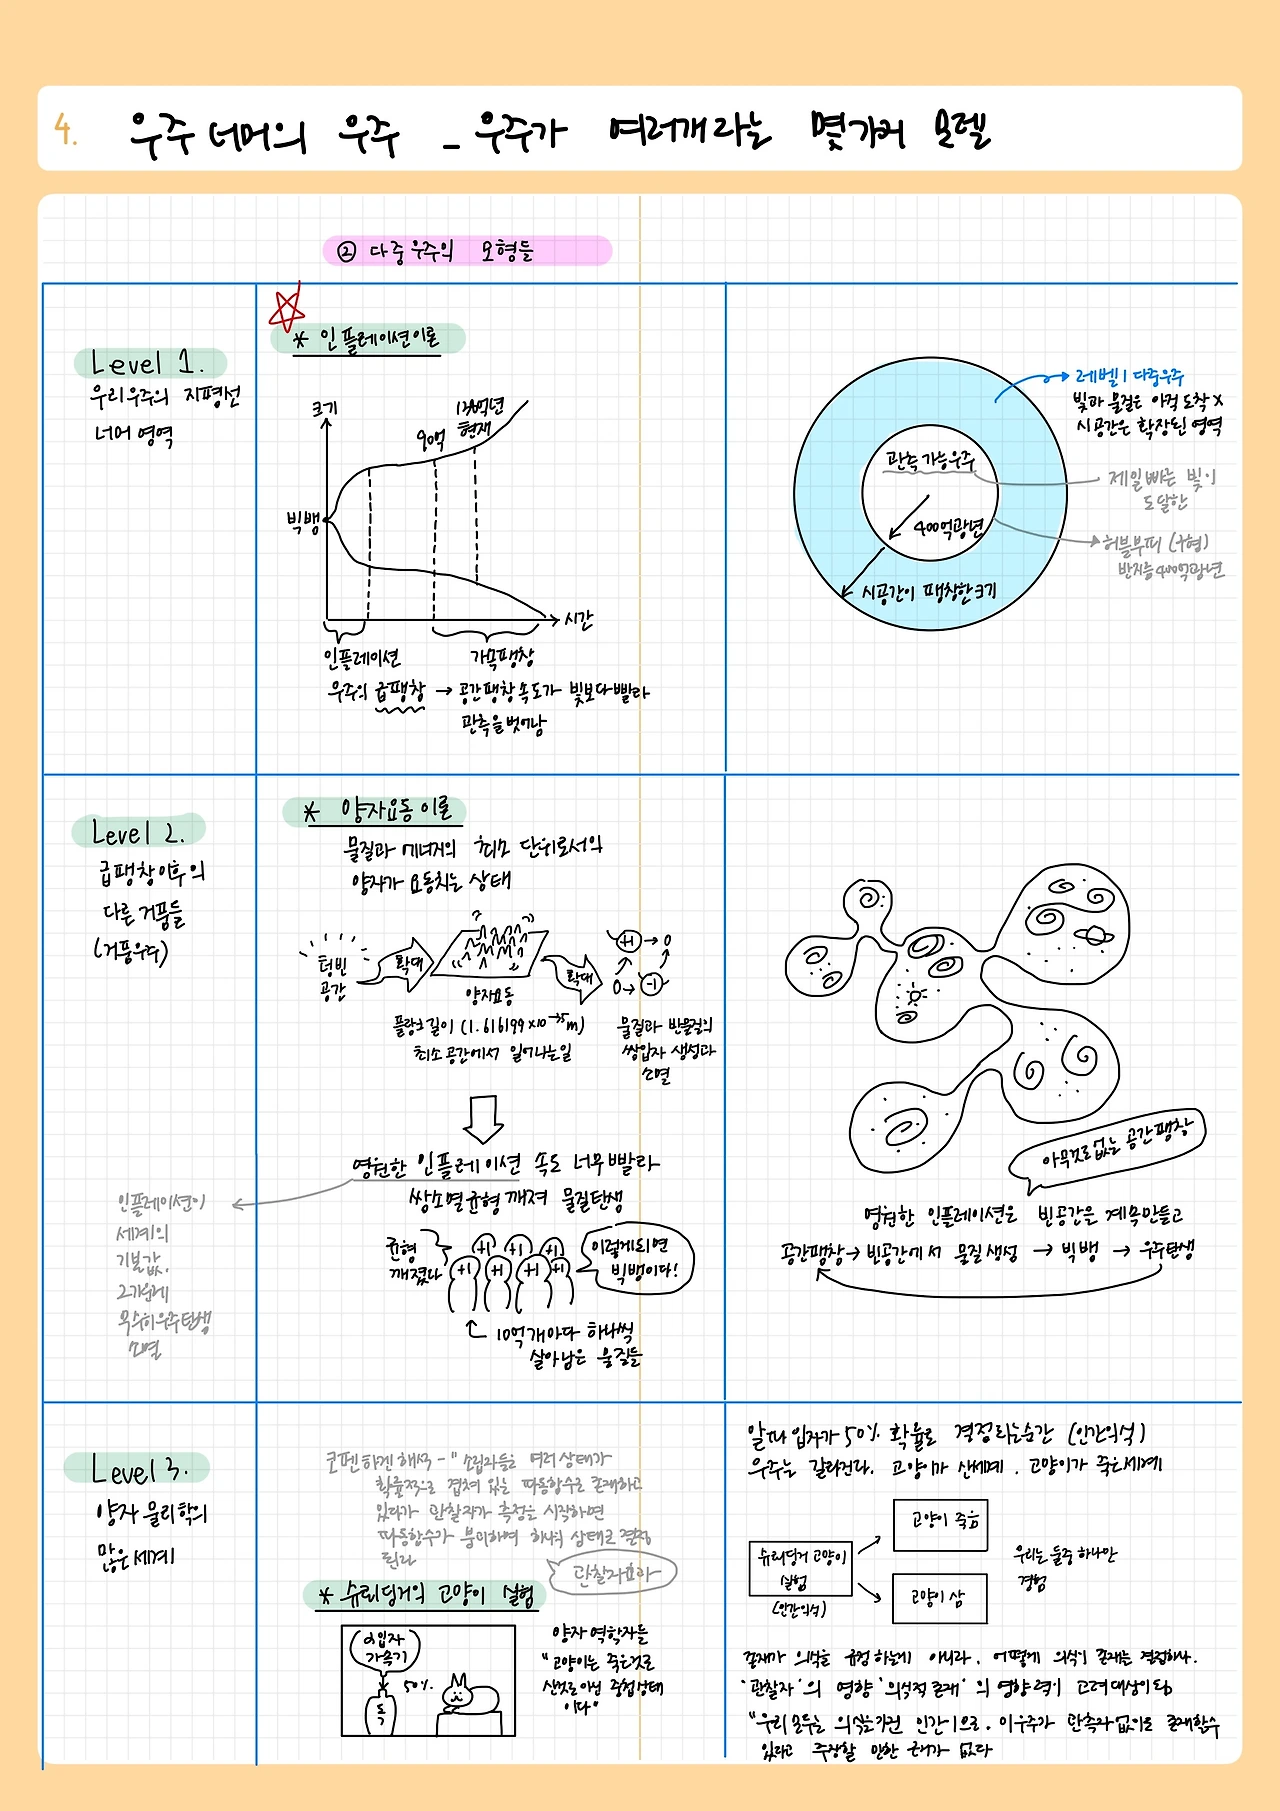 4. 우주 너머의 우주 _ 우주가 여러개라는 몇가지 모델
② 다중우주의 모형들
Level 1.
우리우주의 지평선
너머 영역
* 인플레이션이론
크기
90억
138억년
현재
빅뱅
시간
인플레이션
가속팽창
우주의 급팽창 → 공간팽창속도가 빛보다빨라
관측을벗어남
레벨1 다중우주
빛과 물질은 아직 도착 X
시공간은 확장된 영역
관측가능우주
제일빠른 빛이
도달한
400억광년
허블부피 (구형)
반지름400억광년
시공간이 팽창한크기
Level 2.
급팽창이후의
다른 거품들
(거품우주)
* 양자요동이론
물질과 에너지의 최소 단위로서의
양자가 요동치는 상태
텅빈
공간
확대
양자요동
확대
+1 → 0
0 → -1
플랑크길이 (1.616199×10⁻³⁵m)
최소공간에서 일어나는일
물질과 반물질의
쌍입자 생성과
소멸
영원한 인플레이션 속도 너무빨라
쌍소멸균형깨져 물질탄생
인플레이션이
세계의
기본값.
그가운데
무수히우주탄생
소멸
균형
깨졌다
+1 +1 +1
+1 +1 +1 +1
이렇게되면
빅뱅이다!
10억개마다 하나씩
살아남은 물질들
아무것도없는 공간팽창
영원한 인플레이션은 빈공간은 계속만들고
공간팽창→빈공간에서 물질생성 → 빅뱅 → 우주탄생
Level 3.
양자 물리학의
많은세계
코펜하겐해석 - "소립자들은 여러상태가
확률적으로 겹쳐 있는 파동함수로 존재하고
있다가 관찰자가 측정을 시작하면
파동함수가 붕괴하여 하나의 상태로 결정
된다
관찰자효과
* 슈뢰딩거의 고양이 실험
α입자
가속기
50%
독
양자 역학자들
"고양이는 죽은것도
산것도아닌 중첩상태
이다"
알파입자가 50% 확률로 결정되는순간 (인간의식)
우주는 갈라진다. 고양이가 산세계. 고양이가 죽은세계
슈뢰딩거 고양이
실험
(인간의식)
고양이 죽음
고양이 삶
우리는 둘중 하나만
경험
존재가 의식을 규정하는게 아니라, 어떻게 의식이 존재를 결정하나.
'관찰자'의 영향 '의식적존재'의 영향력이 고려대상이됨
"우리모두는 의식을가진 인간이므로, 이우주가 관측자없이도 존재할수
있다고 주장할 만한 근거가 없다